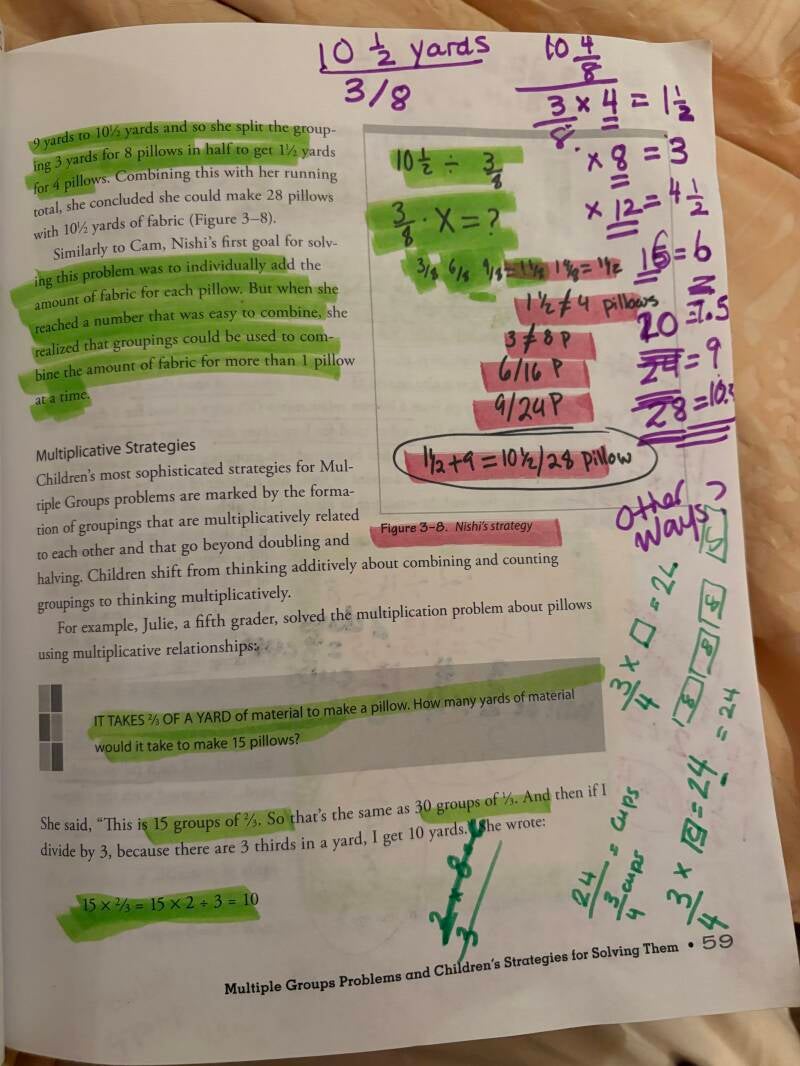 10 1/2 yards
3/8
10 4/8
3/8 × 4 = 1 1/2
× 8 = 3
× 12 = 4 1/2
16 = 6
20 = 7.5
24 = 9
28 = 10.5
9 yards to 10½ yards and so she split the group-
ing 3 yards for 8 pillows in half to get 1½ yards
for 4 pillows. Combining this with her running
total, she concluded she could make 28 pillows
with 10½ yards of fabric (Figure 3–8).
Similarly to Cam, Nishi's first goal for solv-
ing this problem was to individually add the
amount of fabric for each pillow. But when she
reached a number that was easy to combine, she
realized that groupings could be used to com-
bine the amount of fabric for more than 1 pillow
at a time.
10 1/2 ÷ 3/8
3/8 · X = ?
3/8 6/8 9/8 = 1 1/8 1 4/8 = 1 1/2
1 1/2 ≠ 4 pillows
3 ≠ 8 P
6/16 P
9/24 P
1 1/2 + 9 = 10 1/2 / 28 pillow
Figure 3–8. Nishi's strategy
Multiplicative Strategies
Children's most sophisticated strategies for Mul-
tiple Groups problems are marked by the forma-
tion of groupings that are multiplicatively related
to each other and that go beyond doubling and
halving. Children shift from thinking additively about combining and counting
groupings to thinking multiplicatively.
For example, Julie, a fifth grader, solved the multiplication problem about pillows
using multiplicative relationships:
IT TAKES ⅔ OF A YARD of material to make a pillow. How many yards of material
would it take to make 15 pillows?
She said, "This is 15 groups of ⅔. So that's the same as 30 groups of ⅓. And then if I
divide by 3, because there are 3 thirds in a yard, I get 10 yards." She wrote:
15 × ⅔ = 15 × 2 ÷ 3 = 10
Other
ways?
3/4 × □ = 24
= 24
24 / 3/4 cups = cups
Multiple Groups Problems and Children's Strategies for Solving Them • 59